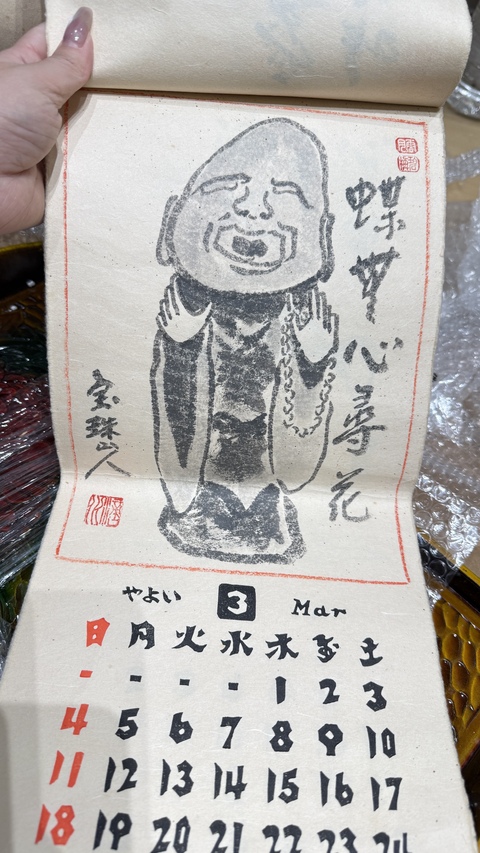 蝶無心尋花
宝珠山人
やよい 3 Mar
日 月 火 水 木 金 土
- - - - 1 2 3
4 5 6 7 8 9 10
11 12 13 14 15 16 17
18 19 20 21 22 23 24